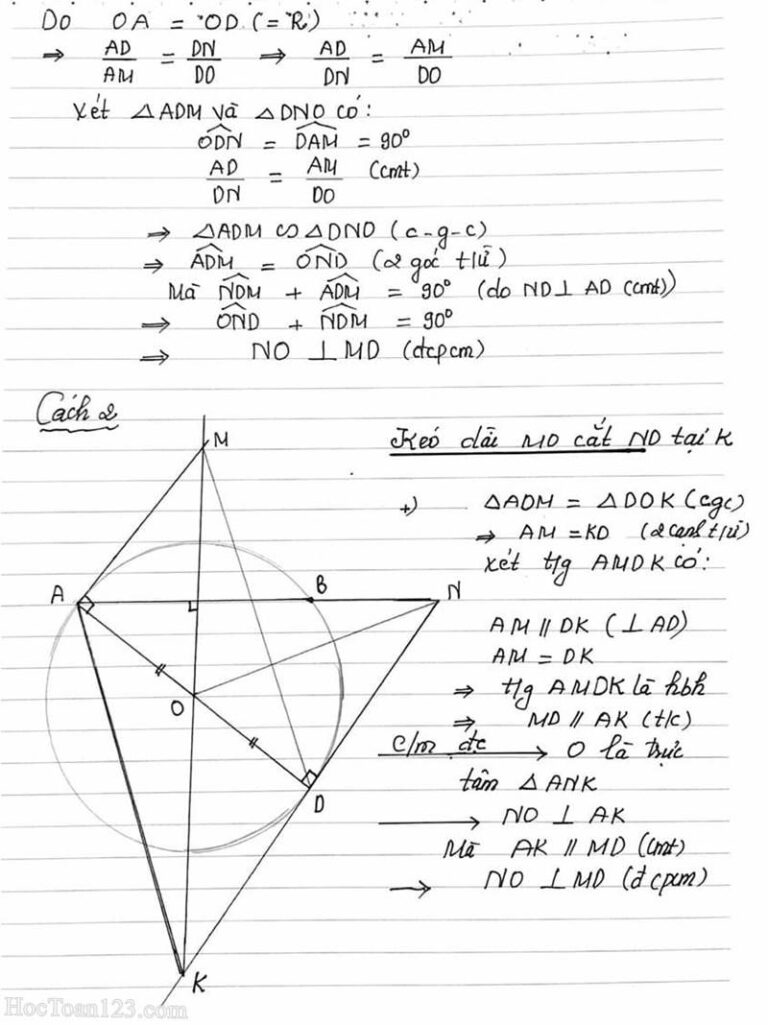 Do OA = OD (= R)
⇒ AD/AM = DN/DO ⇒ AD/DN = AM/DO
Xét △ADM và △DNO có:
ODN = DAM = 90°
AD/DN = AM/DO (cmt)
⇒ △ADM ∽ △DNO (c-g-c)
⇒ ADM = OND (2 góc t/ứ)
Mà NDM + ADM = 90° (do ND ⊥ AD (cmt))
⇒ OND + NDM = 90°
⇒ NO ⊥ MD (đcpcm)
Cách 2
Kéo dài MO cắt ND tại K
+) △AOM = △DOK (cgc)
⇒ AM = KD (2 cạnh t/ứ)
Xét t/g AMDK có:
AM // DK (⊥ AD)
AM = DK
⇒ t/g AMDK là hbh
⇒ MD // AK (t/c)
C/m đc → O là trực
tâm △ANK
→ NO ⊥ AK
Mà AK // MD (cmt)
→ NO ⊥ MD (đcpcm)
M
A
B
N
O
D
K
HocToan123.com